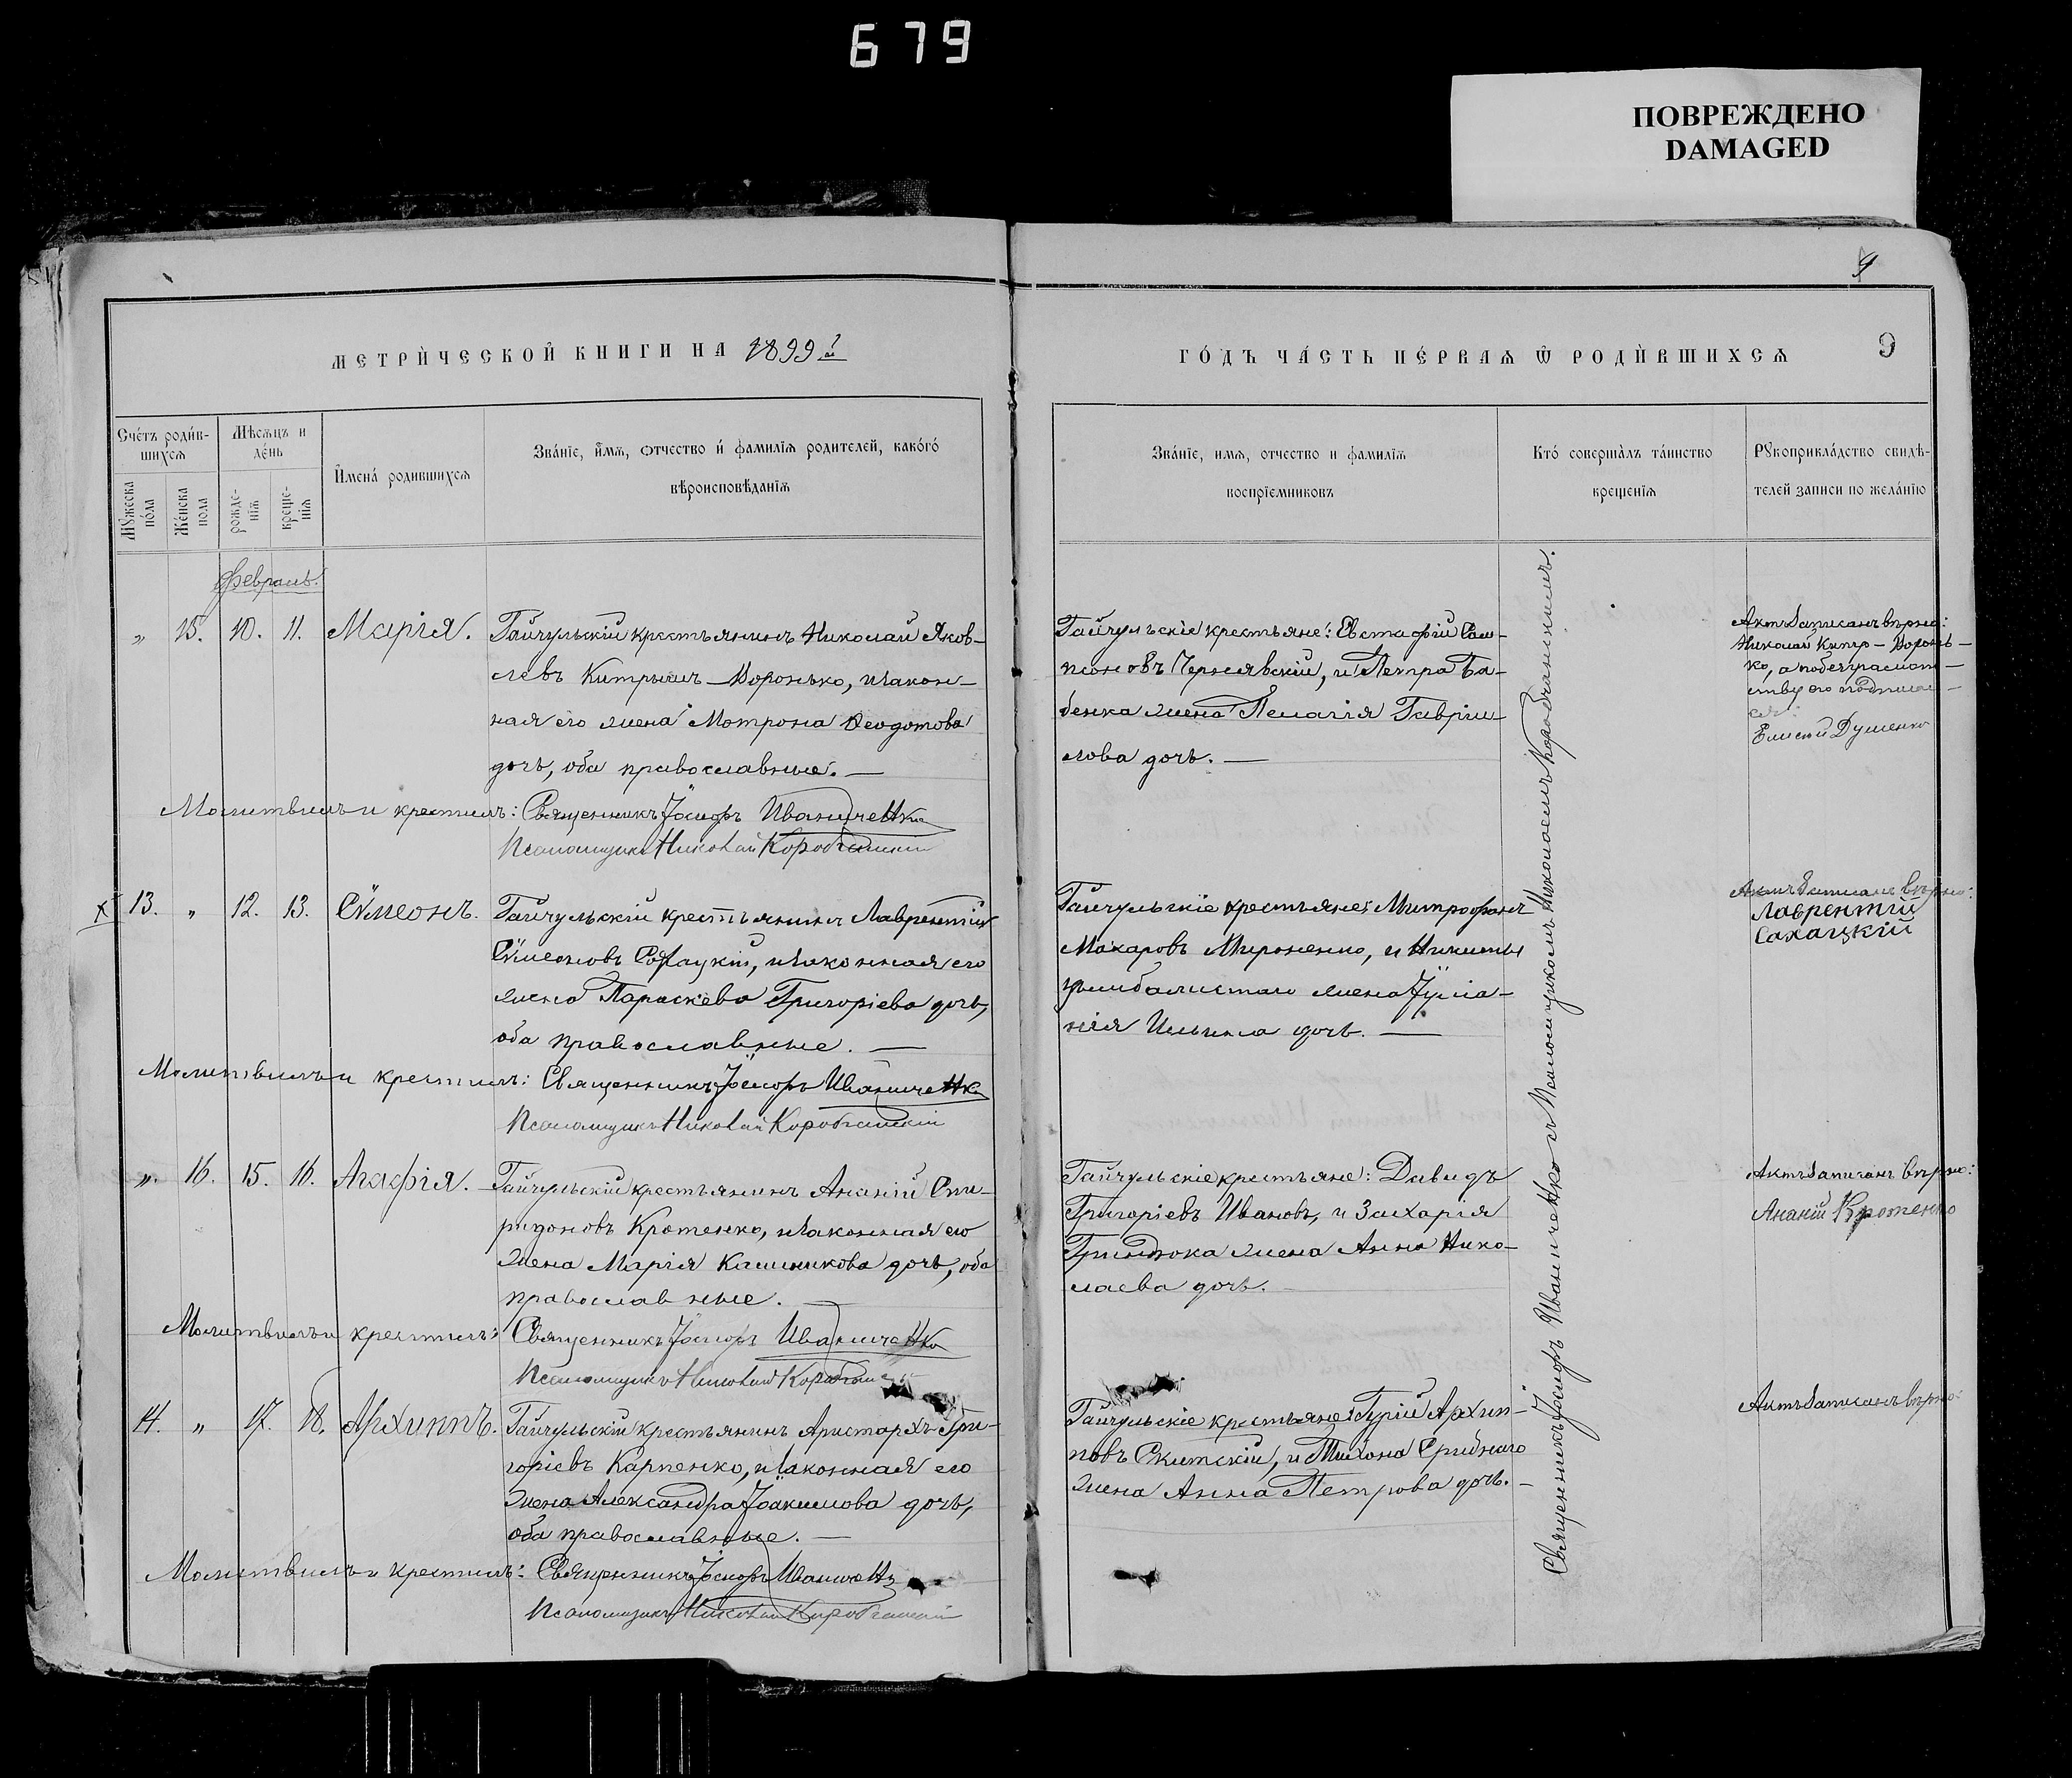 679
ПОВРЕЖДЕНО
DAMAGED
9
МЕТРИ́ЧЕСКОЙ КНИГИ НА 1899й
ГО́ДЪ ЧА́СТЬ ПЕ́РВАѦ Ѿ РОДИ́ВШИХСѦ
9
Сче́тъ роди́в-
шихсѧ
Мꙋжеска по́ла
Же́нска пола
Мѣсѧцъ и де́нь
рожде-
нїѧ
креще-
нїѧ
И҆мена́ родившихсѧ
Зва́нїе, и҆́мѧ, ѻтчество и҆ фамилїѧ родителей, како́гѡ́
вѣроисповѣ́данїѧ
Зва́нїе, имѧ, отчество и фамилїѧ
воспрїемниковъ
Кто́ соверша́лъ та́инство
крещенїѧ
Рꙋкоприкла́дство свидѣ́-
телей записи по жела́нїю
Февраль.
„ 15. 10. 11. Марія. Гайчульскій крестьянинъ Николай Яков-
левъ Китрышъ-Воронько, и законн-
ная его жена Мотрона Ѳеодотова
дочь, оба православные. —
Гайчульскіе крестьяне: Евстафій Сам-
псоновъ Чернявскій, и Петра Ба-
бенка жена Пелагія Гаврии-
лова дочь. —
Актъ записанъ вѣрно:
Николай
ко, а по безграмот-
ству его подписал-
ся:
Елисей Душенко
Молитвилъ и крестилъ: Священникъ Іосифъ Иваниченко
Псаломщикъ Николай Коробчанскій
13. „ 12. 13. Сѵмеонъ. Гайчульскій крестьянинъ Лаврентій
Сѵмеоновъ Сахацкій, и законная его
жена Параскева Григоріева дочь,
оба православные. —
Гайчульскіе крестьяне: Митрофанъ
Макаровъ Мироненко, и Никиты
Цымбалистаго жена Іуліа-
нія Ильина дочь. —
Актъ записанъ вѣрно:
Лаврентій
Сахацкій
Молитвилъ и крестилъ: Священникъ Іосифъ Иваниченко
Псаломщикъ Николай Коробчанскій
„ 16. 15. 16. Агафія. Гайчульскій крестьянинъ Ананій Спи-
ридоновъ Кротенко, и законная его
жена Марія Калиникова дочь, оба
православные. —
Гайчульскіе крестьяне: Давидъ
Григоріевъ Ивановъ, и Захарія
Гриндюка жена Анна Нико-
лаева дочь. —
Актъ записанъ вѣрно:
Ананій Кротенко
Молитвилъ и крестилъ: Священникъ Іосифъ Иваниченко
Псаломщикъ Николай Коробчанскій
14. „ 17. 18. Архиппъ. Гайчульскій крестьянинъ Аристархъ Гри-
горіевъ Карпенко, и законная его
жена Александра Іоакимова дочь,
оба православные. —
Гайчульскіе крестьяне: Гурій Архип-
повъ Скитскій, и Тихона Срибнаго
жена Анна Петрова дочь. —
Актъ записанъ вѣрно:
Молитвилъ и крестилъ: Священникъ Іосифъ Иваниченко
Псаломщикъ Николай Коробчанскій
Священникъ Іосифъ Иваниченко съ Псаломщикомъ Николаемъ Коробчанскимъ.